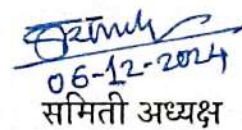 06-12-2024
समिती अध्यक्ष